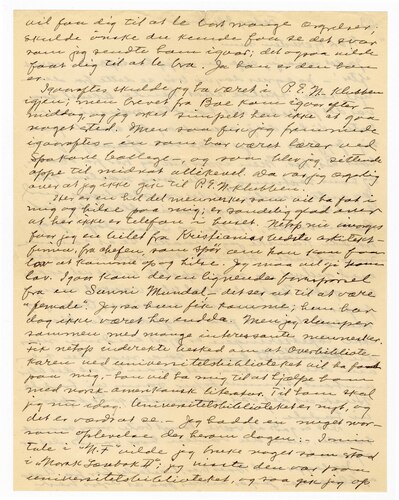 vil faa dig til at le bort mange ærgrelser,
skulde ønske du kunde faa se det svar
som jeg sendte ham igaar; det ogsaa vilde
faat dig til at le bra. Ja han er den han
er.
Igaaraftes skulde jeg ha været i P.E.N. Klubben
igjen; men brevet fra Boe kom igaar efter-
middag og jeg orket simpelt hen ikke at gaa
noget sted. Men saa fik jeg fremmede
igaaraftes - en som har været lærer ved
Spokane College - og saa blev jeg sittende
oppe til midnat allikevel. Da var jeg ærgelig
over at jeg ikke gik til P.E.N. klubben!
Her er en hel del mennesker som vil ha fat i
mig og hilse paa mig; er sandelig glad over
at her ikke er telefon i huset. Netop nu imorges
fik jeg en hilsen fra Kristianias bedste arkitekt-
firma, fra chefen som spør om han kan faa
lov at komme op og hilse. Jeg maa vel gi ham
lov. Igaar kom der en lignende forespørsel
fra en Sanni Mundal - det ser ut til at være
"female". Jeg sa hun fik komme; hun har
dog ikke været her endda. Men jeg slumper
sammen med mange interessante mennesker.
Fik netop indirekte besked om at Overbibliote-
karen ved universitetsbiblioteket vil ha fat
paa mig - han vil ha mig til at hjælpe ham
med norsk amerikansk literatur. Til ham skal
jeg nu idag. Universitetsbiblioteket er nyt, og
det er værdt at se. - Jeg hadde en noget mor-
som oplevelse der herom dagen: I min
tale i "N.F" vilde jeg bruke noget som stod
i "Norsk Læsebok II"; jeg visste den var paa
universitetsbiblioteket, og saa gik jeg op